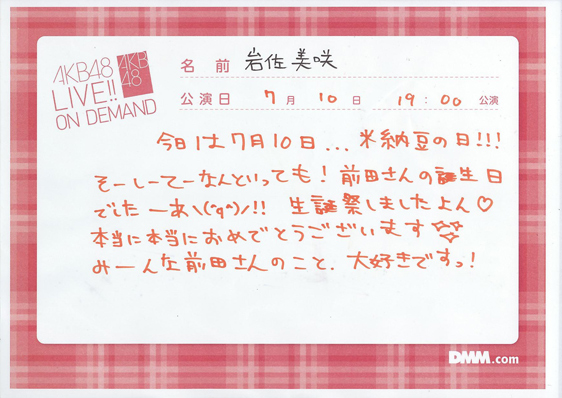 AKB48
LIVE!!
ON DEMAND
AKB
48
名前 岩佐美咲
公演日 7月 10日 19:00 公演
今日は7月10日...米納豆の日!!!
そーしーてーなんといっても!前田さんの誕生日
でしたーあヽ(^q^)ノ!! 生誕祭しましたよん♡
本当に本当におめでとうございます☆☆☆
みーんな前田さんのこと、大好きですっ!
DMM.com